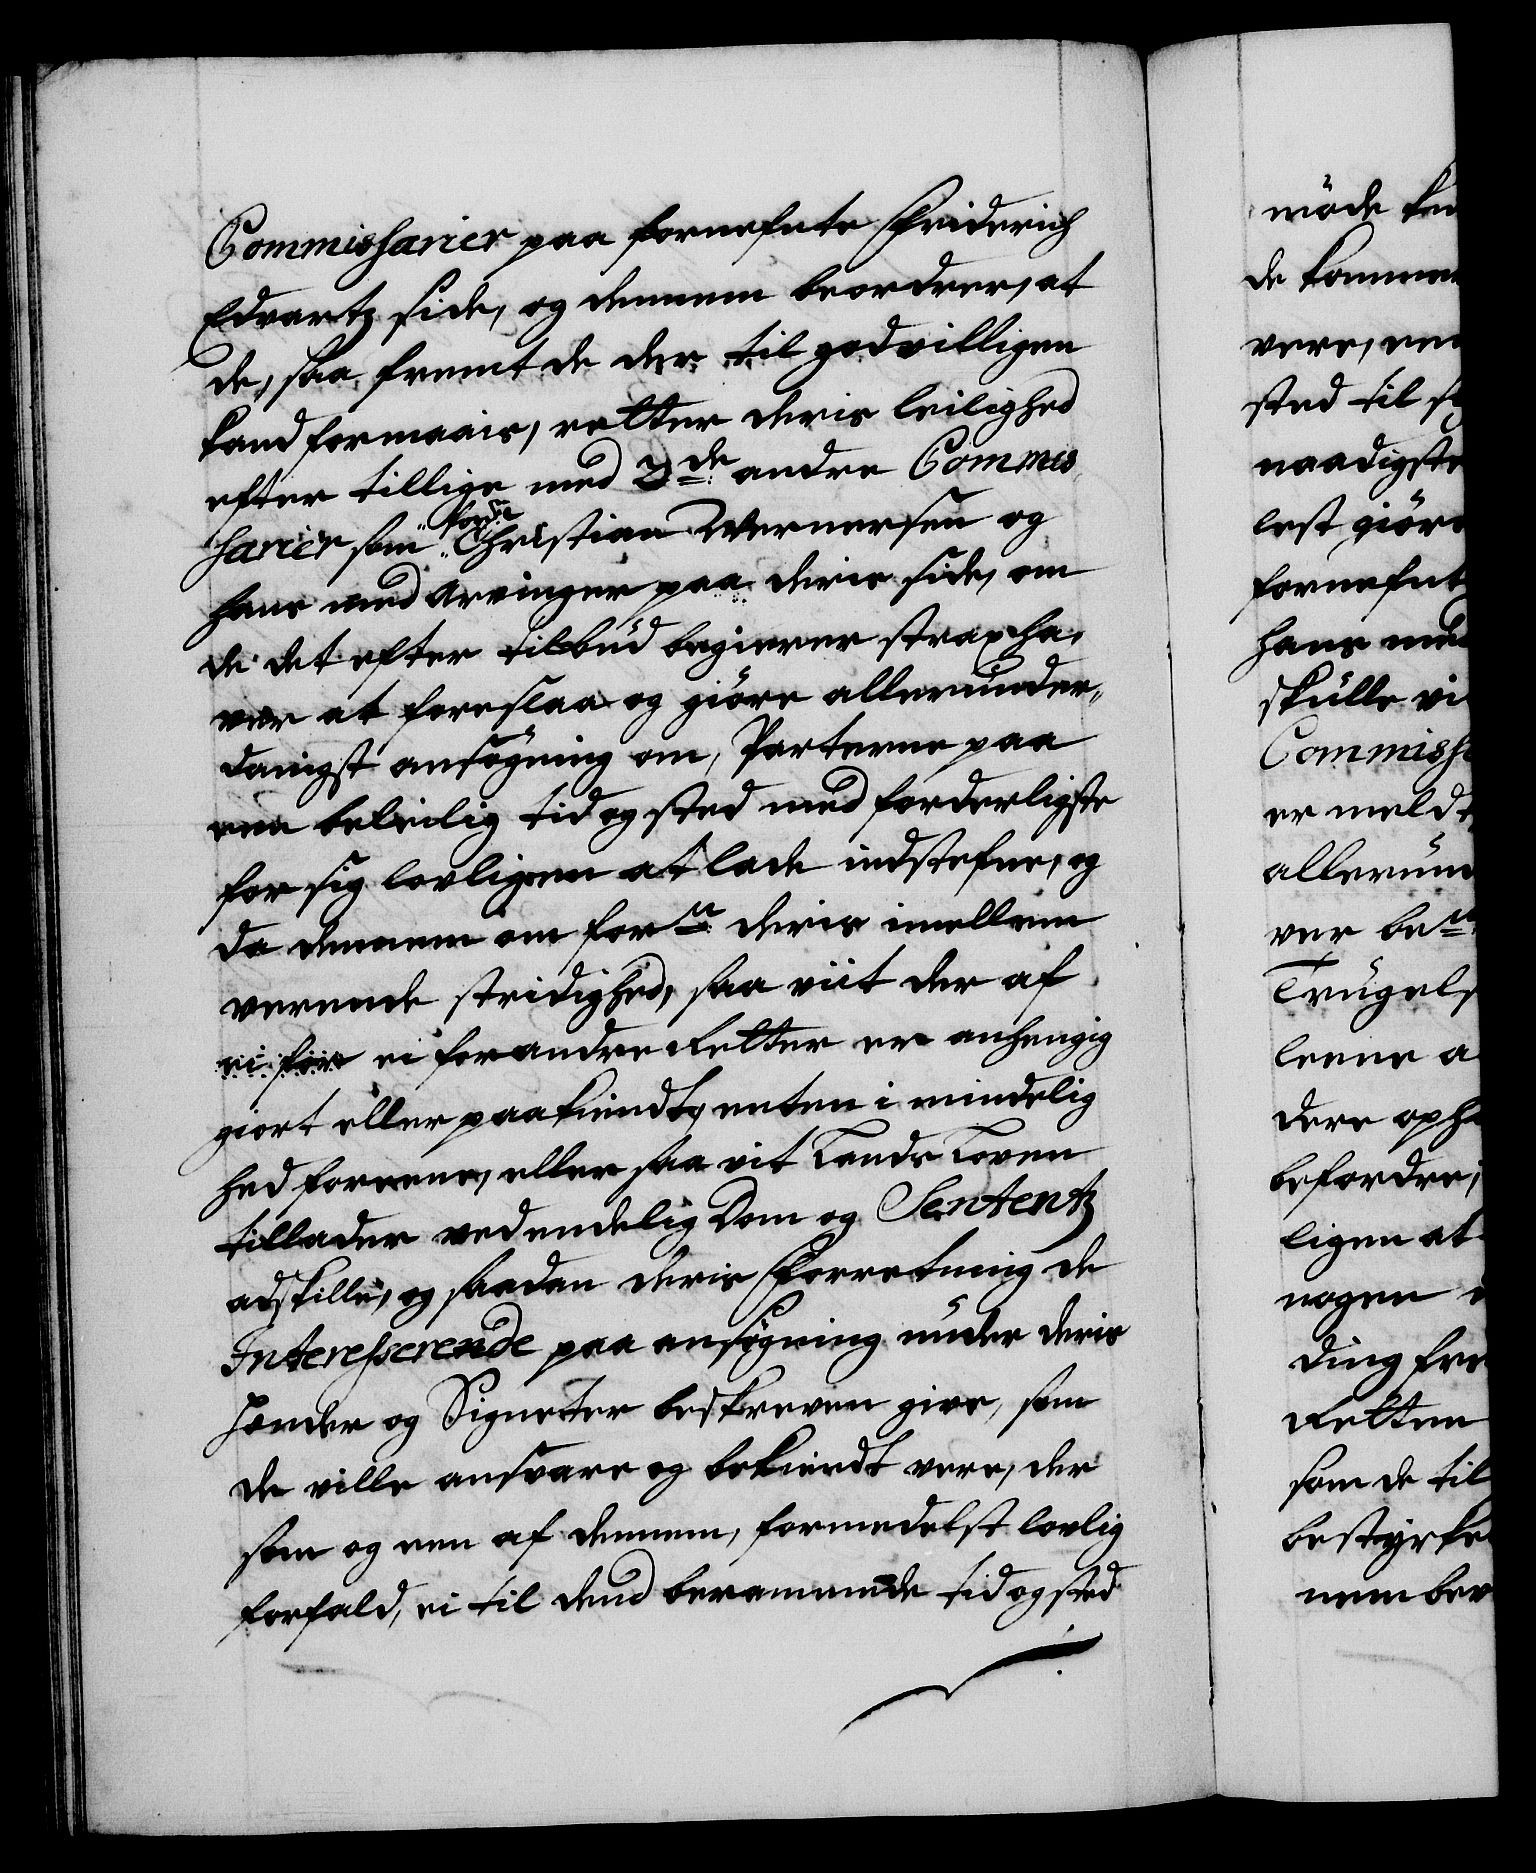 Commissarier paa fornefnte Friderich
Edvartz side, og dennem beordrer, at
de, saa fremt de der til godvilligen
kand formaais, retter deris leilighed
efter tillige med 2de andre Commis
sarier som forne Christian Wernersen og
hans med arvinger paa deris side, om
de det efter tilbud begierer strax ha,
ver at foreslaa og giöre allerunder,
danigst ansögning om, Parterne paa
een beleilig tid og sted med forderligste
for sig lovligen at lade indstefne, og
da dennem om forne deris imellem
verende stridighed, saa viit der af
ei for ei for andre Retter er anhengig
giort eller paakiendt, enten i mindelig
hed foreene, eller saa vit Lands Loven
tillader ved endelig Dom og Sententz
adskille, og saadan deris Forretning de
Interesserende paa ansögning under deris
Hænder og Signeter beskreven give, som
de ville ansvare og bekiendt vere, der
som og een af dennem, formedelst lovlig
forfald, ei til dend berammede tid og sted
möde
de komme
vere, een
sted til
naadigste
lest giöre
fornefnt
hans med
skulle vi
Commiss
er meldt
allerun
ver be
Trugels
leene a
dere oph
befordre,
ligen at
nogen
ding fre
Retten
som de til
bestyrke
nem ber